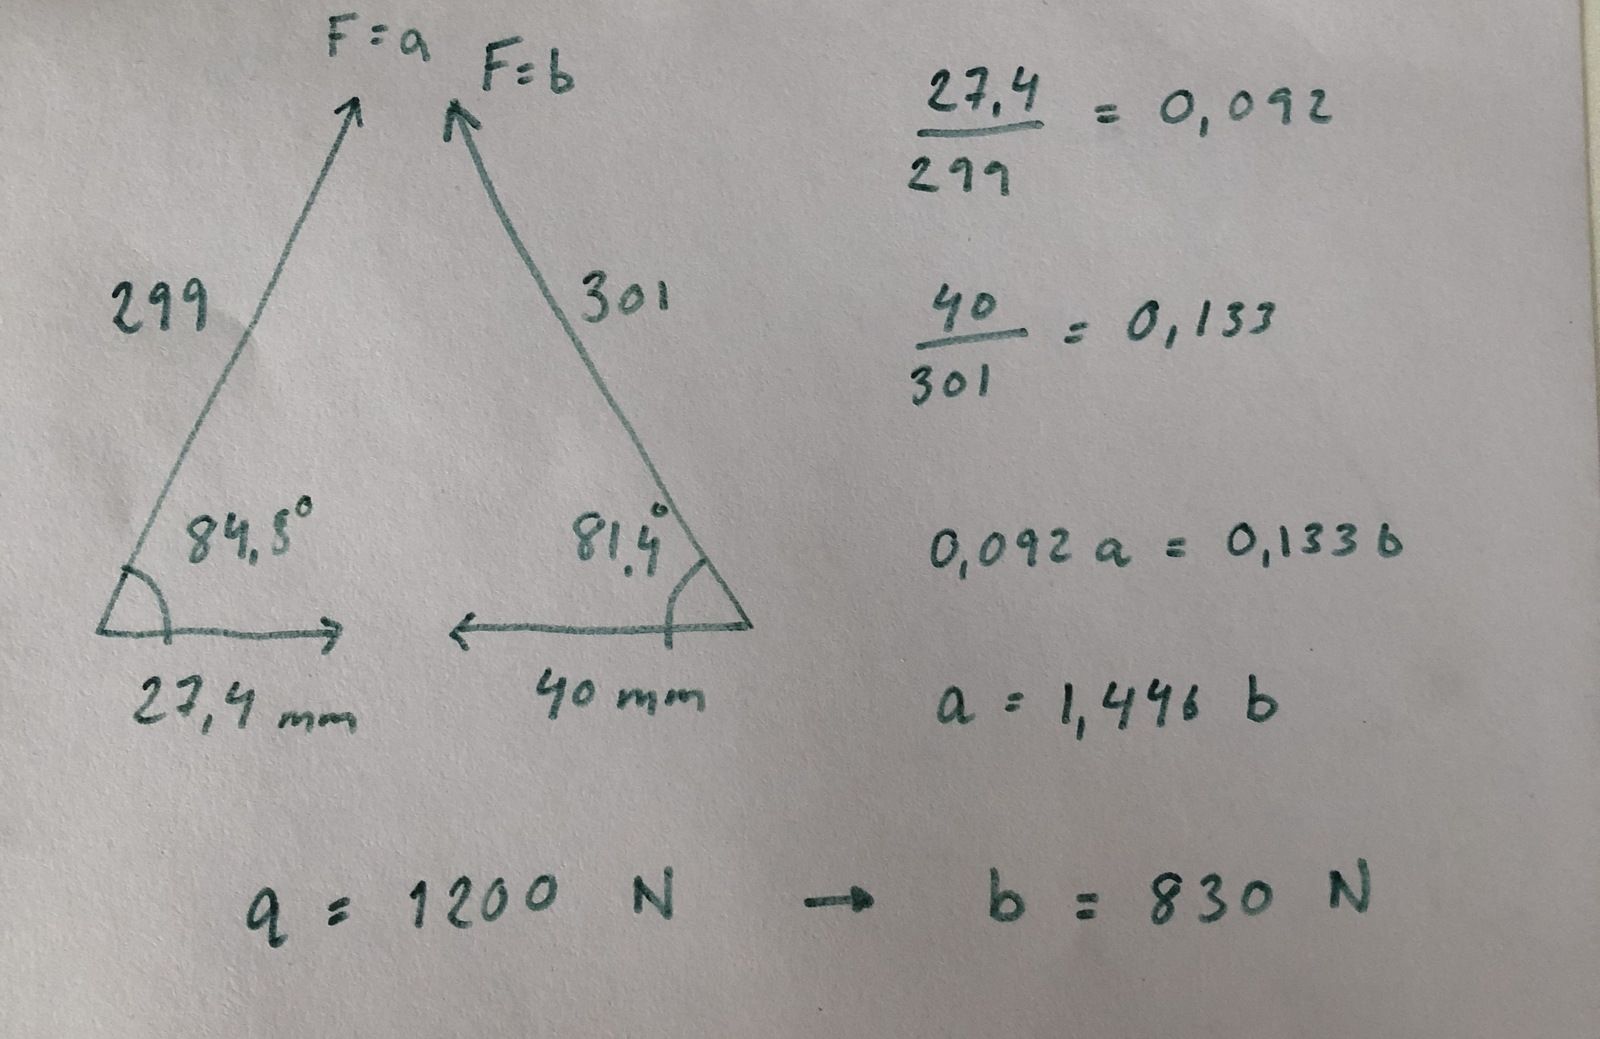 F=a
F=b
27,4 / 299 = 0,092
299
301
40 / 301 = 0,133
84,5°
81,4°
0,092 a = 0,133 b
27,4 mm
40 mm
a = 1,446 b
a = 1200 N → b = 830 N